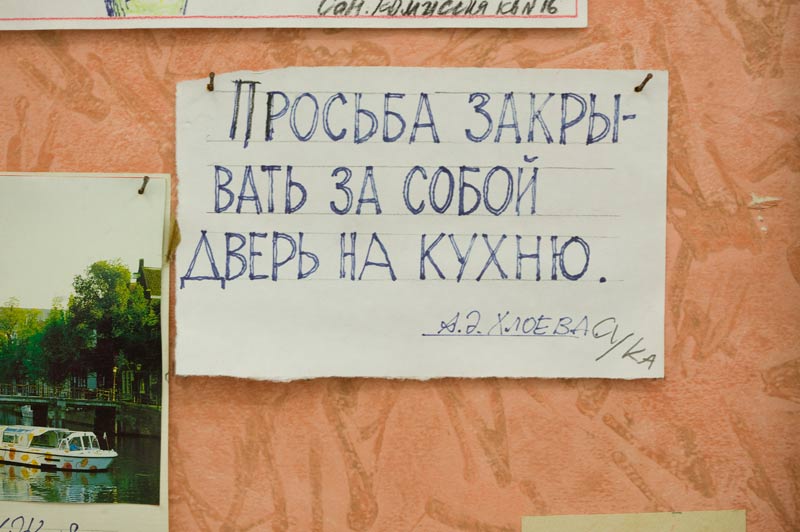 Сан. комиссия кв № 16
ПРОСЬБА ЗАКРЫ-
ВАТЬ ЗА СОБОЙ
ДВЕРЬ НА КУХНЮ.
А.Э. ХЛОЕВА СУКА